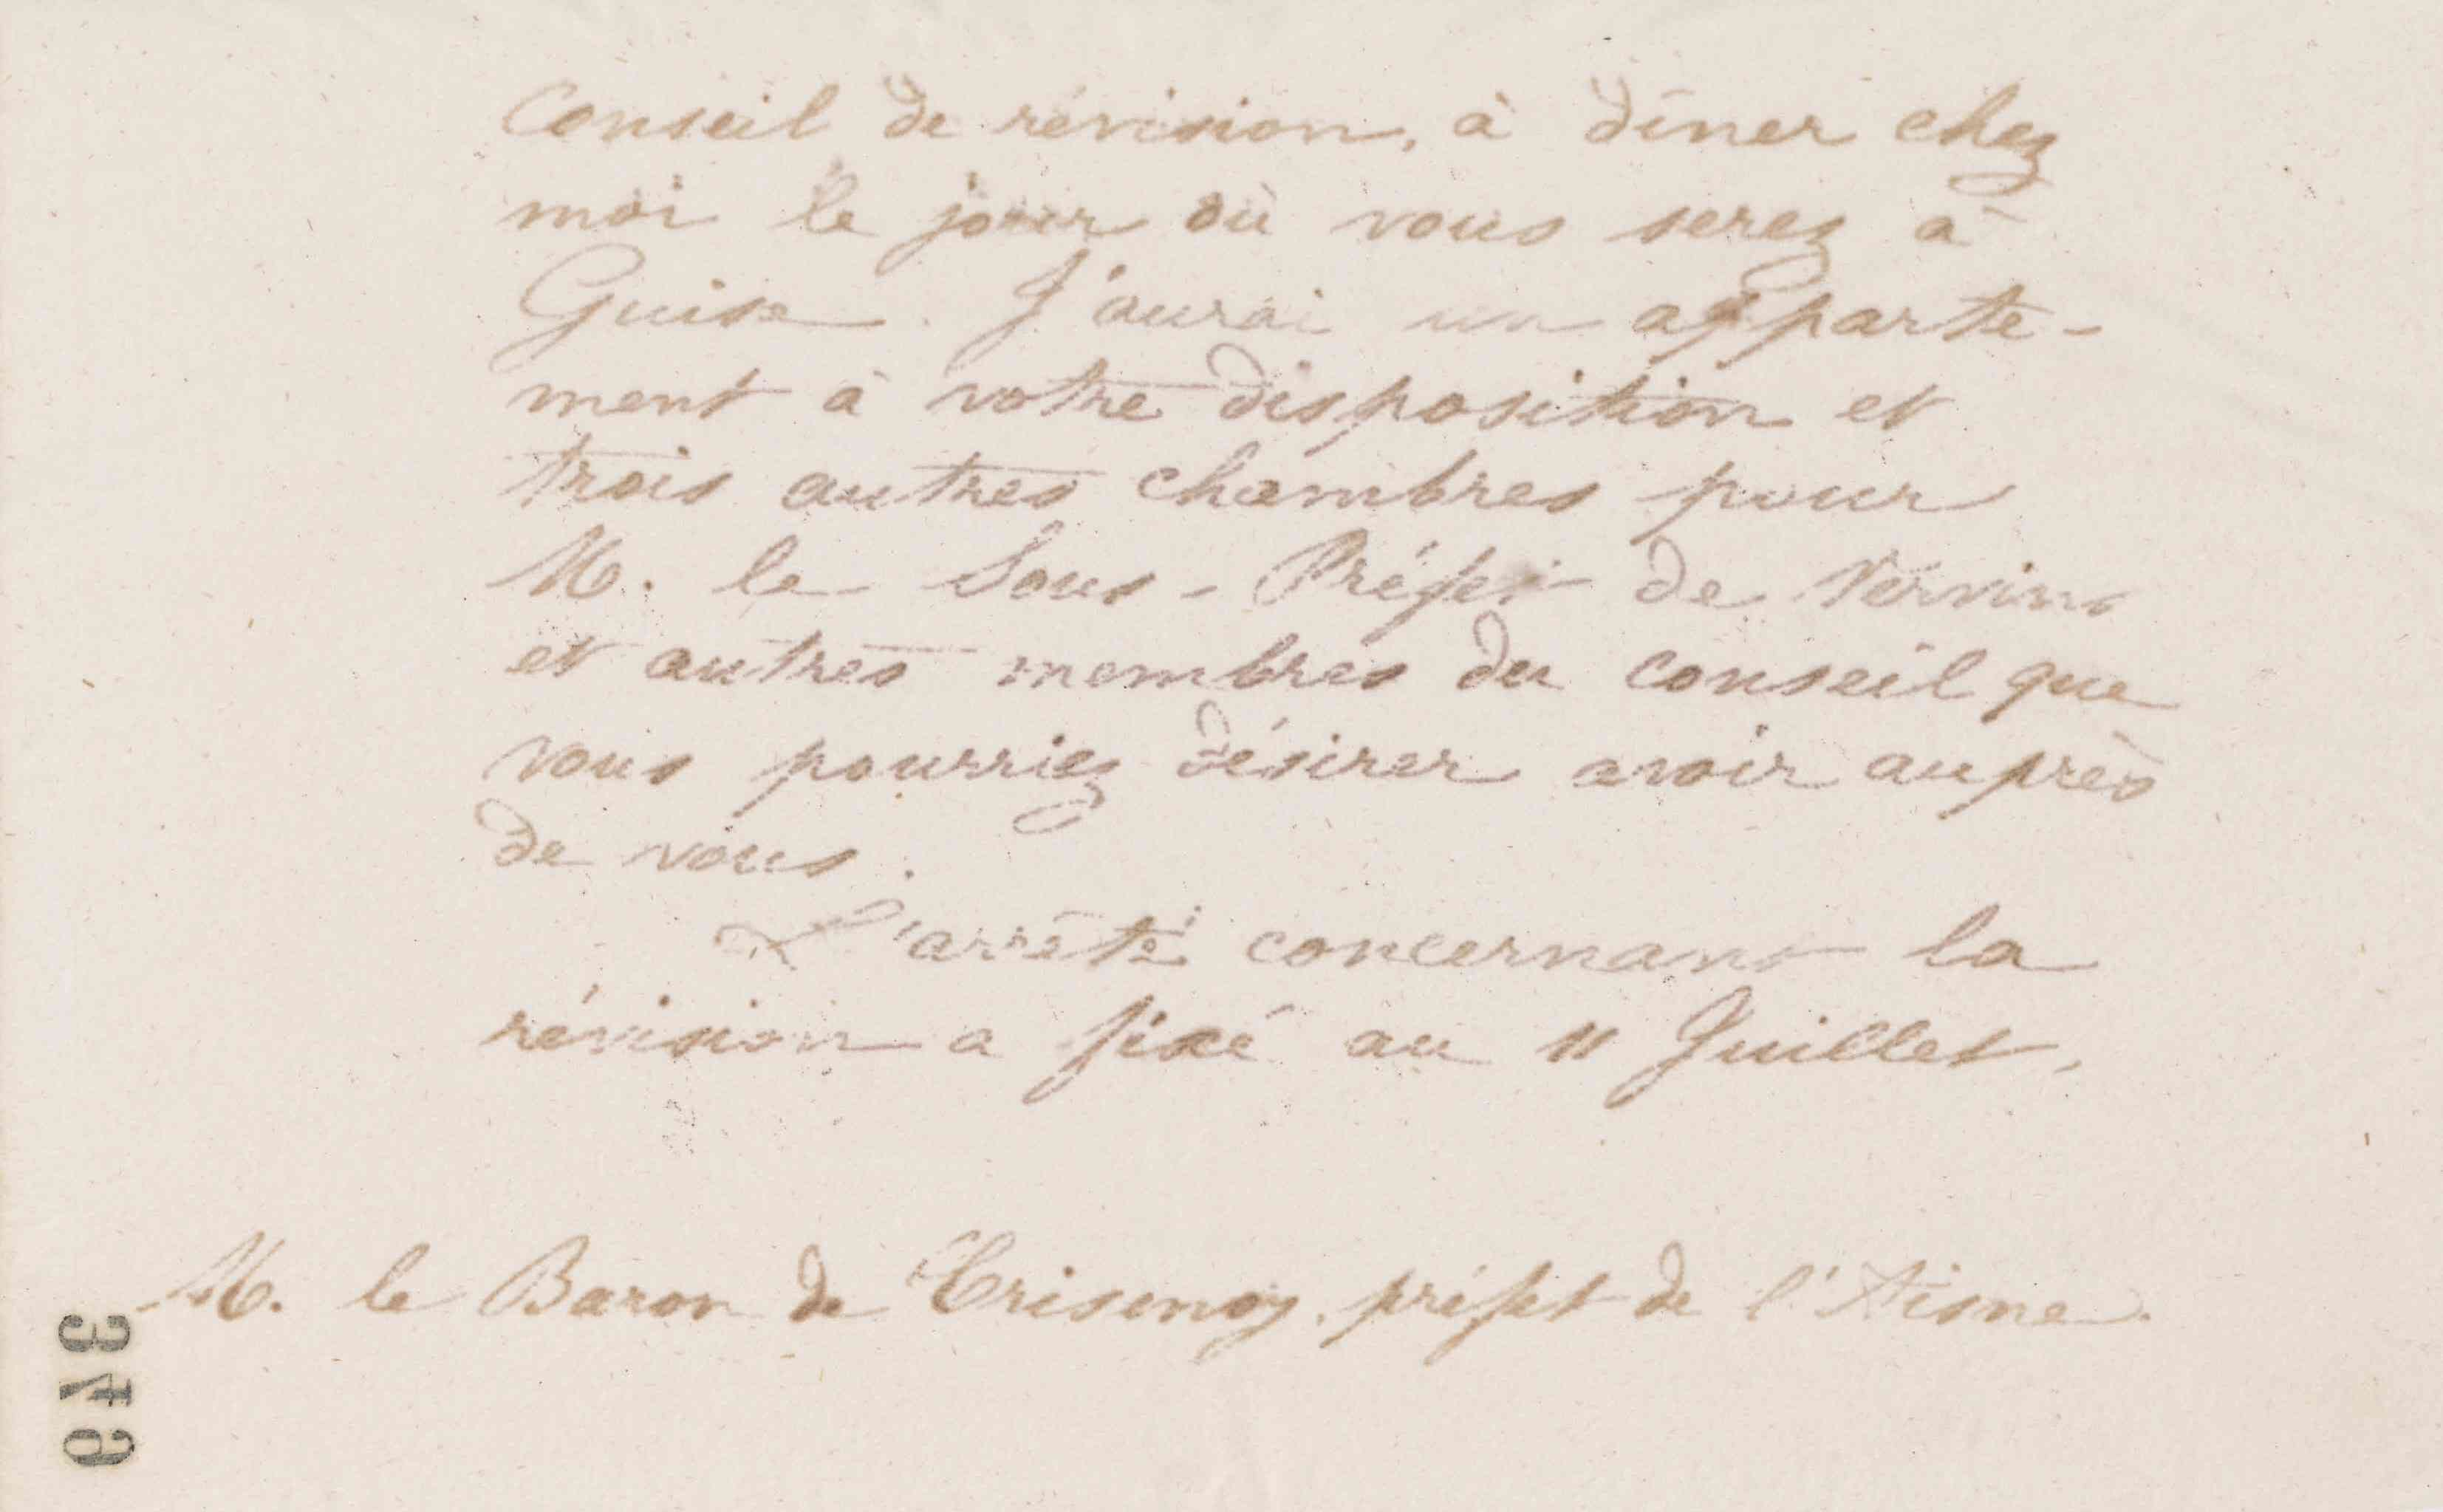 Conseil de révision, à dîner chez
moi le jour où vous serez à
Guise. J'aurai un apparte-
ment à votre disposition et
trois autres chambres pour
M. le Sous-Préfet de Vervins
et autres membres du conseil que
vous pourriez désirer avoir auprès
de vous.
L'arrêté concernant la
révision a fixé au 11 Juillet,
M. le Baron de Crisenoy, préfet de l'Aisne.
349